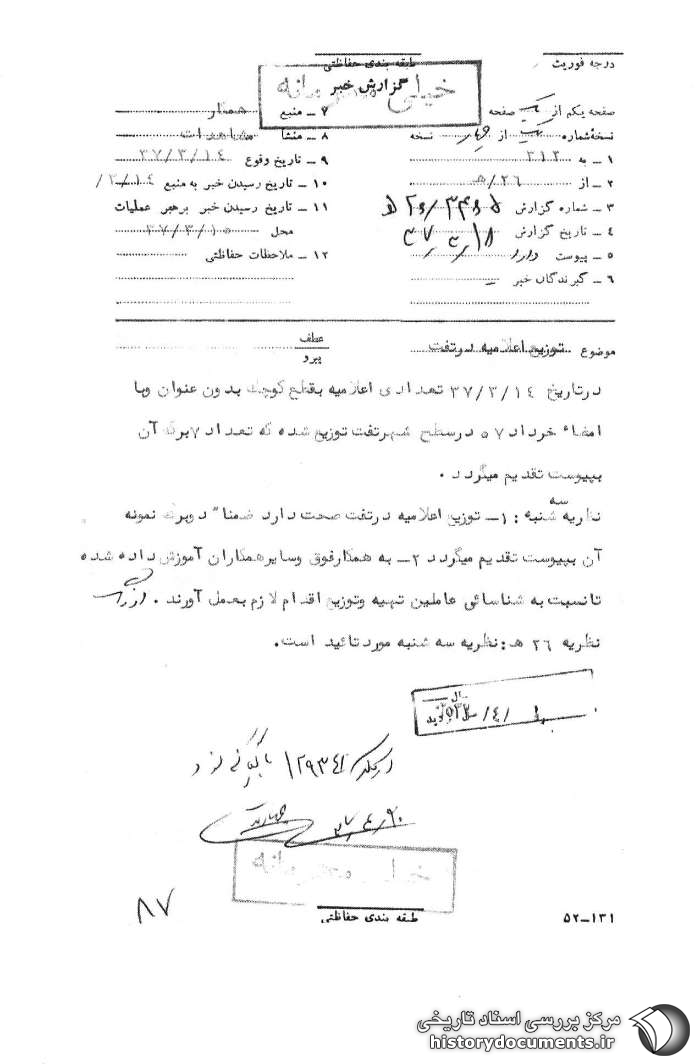 درجه فوریت
طبقه بندی حفاظتی
خیلی محرمانه
گزارش خبر
صفحه یکم از یک صفحه
نسخهٔ شماره یک از چهار نسخه
۱ – به ۳۱۲
۲ – از ۲۶/هـ
۳ – شماره گزارش
۴ – تاریخ گزارش ۳۷/۳/۱۸
۵ – پیوست دارد
۶ – گیرندگان خبر –
۷ – منبع همکار
۸ – منشا مشاهدات
۹ – تاریخ وقوع ۳۷/۳/۱۴
۱۰ – تاریخ رسیدن خبر به منبع ۳/۱۴/
۱۱ – تاریخ رسیدن خبر برهبر عملیات
محل ۳۷/۳/۱۵
۱۲ – ملاحظات حفاظتی
موضوع توزیع اعلامیه درتفت
عطف
پیرو
درتاریخ ۳۷/۳/۱۴ تعدادی اعلامیه بقطع کوچک بدون عنوان وبا
امضاء خرداد ۵۷ درسطح شهرتفت توزیع شده که تعداد ۷ برگ آن
بپیوست تقدیم میگردد .
نظریه سه شنبه : ۱ – توزیع اعلامیه درتفت صحت دارد ضمنا" دوبرگ نمونه
آن بپیوست تقدیم میگردد ۲ – به همکارفوق وسایرهمکاران آموزش داده شده
تانسبت به شناسائی عاملین تهیه وتوزیع اقدام لازم بعمل آورند .
نظریه ۲۶ هـ : نظریه سه شنبه مورد تائید است .
خیلی محرمانه
۸۷
طبقه بندی حفاظتی
۵۲–۱۳۱
مرکز بررسی اسناد تاریخی
historydocuments.ir